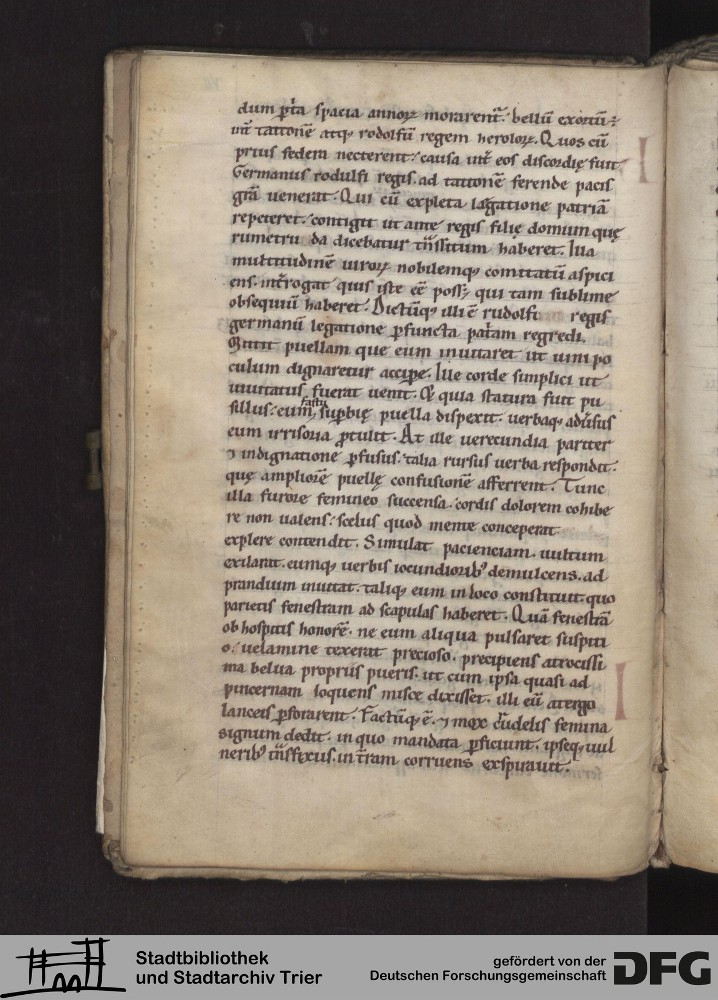 dum p̄ta spacia annoꝝ morarent̄. bellū exortū ÷
int̄ tattonē atq; rodolfū regem heroloꝝ. Quos cū
prius federa necterent. causa int̄ eos discordię fuit.
Germanus rodulfi regis. ad tattonē ferende pacis
grā uenerat. Qui cū expleta lagatione patriā
repeteret. contigit ut ante regis filię domum quę
rumetru da dicebatur tn̄ssitum haberet. Illa
multitudinē uiroꝝ nobilemq; comitatū aspici
ens. int̄rogat quis iste eē poss; qui tam sublime
obsequiū haberet. Dictūq; illi ē rudolfi regis
germanū legatione ꝑfuncta pat̄am regredi.
Mittit puellam que eum inuitaret ut uini po
culum dignaretur accipe. Ille corde simplici ut
inuitatus fuerat uenit. Et quia statura fuit pu
sillus. eum fastu suꝑbię puella dispexit. uerbaq; adūsus
eum irrisoria ꝓtulit. At ille uerecundia pariter
⁊ indignatione ꝑfusus. talia rursus uerba respondit.
quę ampliorē puellę confusionē afferrent. Tunc
illa furore femineo succensa. cordis dolorem cohibe
re non ualens. scelus quod mente conceperat
explere contendit. Simulat pacienciam. uultum
exilarat. eumq; uerbis iocundiorib; demulcens. ad
prandium inuitat. taliq; eum in loco constituit. quo
parietis fenestram ad scapulas haberet. Quā fenestrā
ob hospitis honorē. ne eum aliqua pulsaret suspiti
o. uelamine texerat precioso. precipiens atrocissi
ma belua propriis pueris. ut cum ipsa quasi ad
pincernam loquens misce dixisset. illi eū atergo
lanceis ꝑforarent. Factūq; ē. ⁊ mox cr̄udelis femina
signum dedit. in quo mandata ꝑficiunt. ipseq; uul
nerib; tn̄sfixus. in t̄ram corruens exspirauit.
Stadtbibliothek
und Stadtarchiv Trier
gefördert von der
Deutschen Forschungsgemeinschaft
DFG